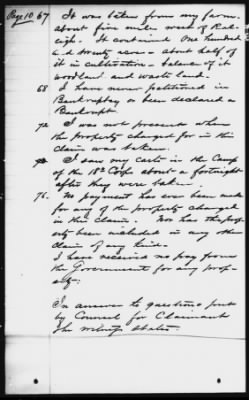 Page 10 67 It was taken from my farm
about five miles west of Ral-
eigh. It contained One Hundred
& twenty acres - about half of
it in cultivation - balance of it
woodland and waste land.
68 I have never petitioned in
Bankruptcy or been declared a
Bankrupt
72 I was not present when
the property charged for in this
claim was taken.
I saw my carts in the Camp
of the 18th Corps about a fortnight
after they were taken.
76. No payment has ever been made
for any of the property charged
in this claim. Nor has the prop-
erty been included in any other
claim of any kind.
I have received no pay from
the Government for any prop-
erty.
In answer to questions put
by Counsel for Claimant
the witness states.